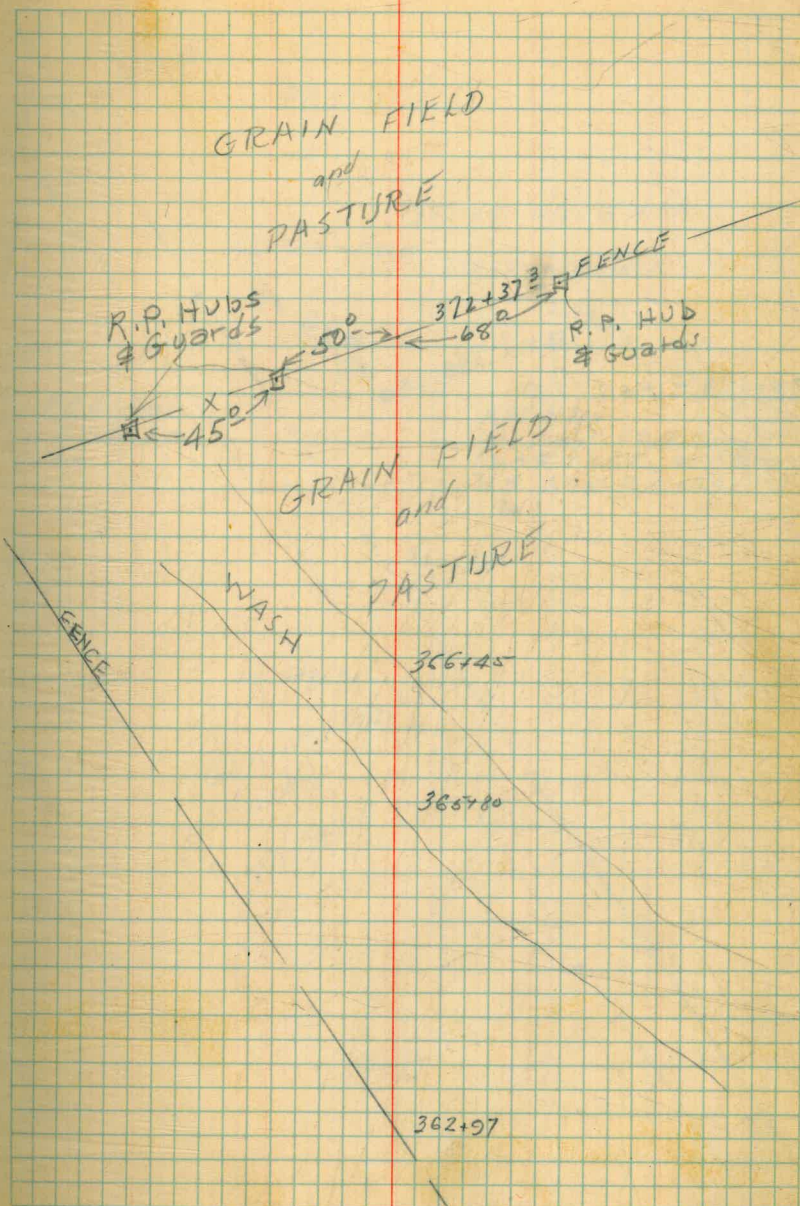 GRAIN FIELD
and
PASTURE
FENCE
372+37³
R.P. Hubs
& Guards
50⁰
68⁰
R.P. HUB
& Guards
X
45⁰
GRAIN FIELD
and
PASTURE
WASH
FENCE
366+45
365+80
362+97